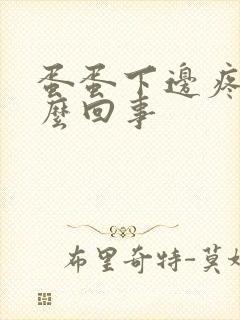 蛋蛋下邊疼
麼回事
布里奇特-莫